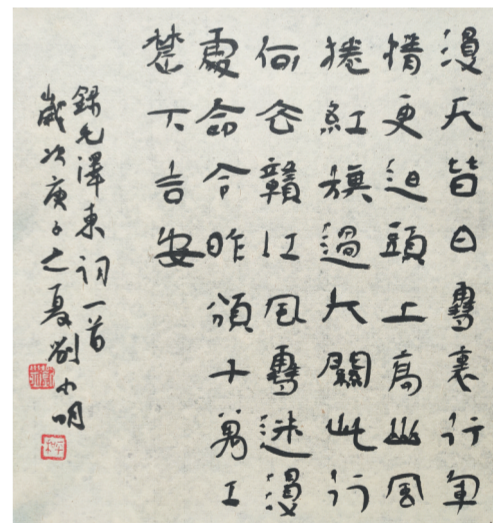 漫天皆白雪裏行軍
情更迫頭上高山風
捲紅旗過大關此行
何去贛江風雪迷漫
處命令昨頒十萬工
農下吉安
錄毛澤東詞一首
歲次庚子之夏劉小明